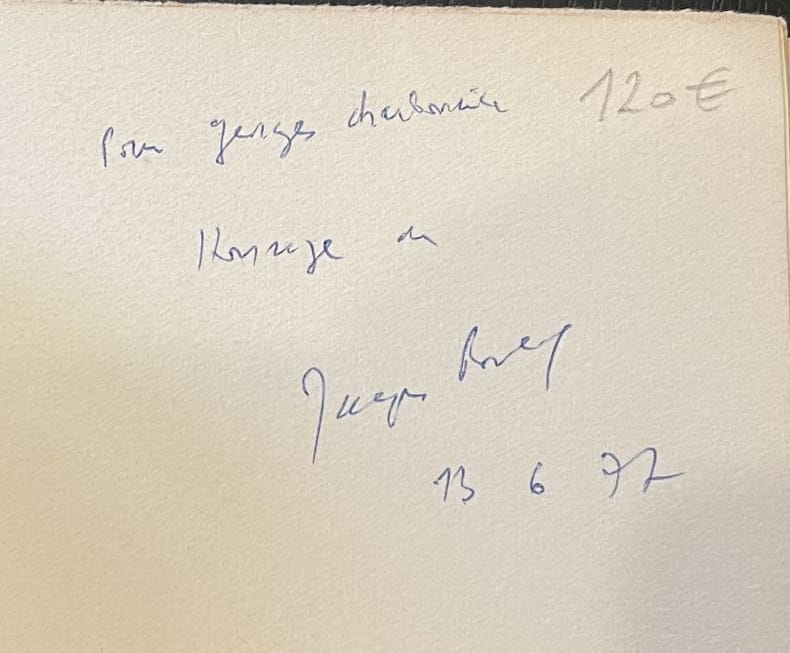 Pour georges charbonnier 120€
Hommage de
Jacques
13 6 77